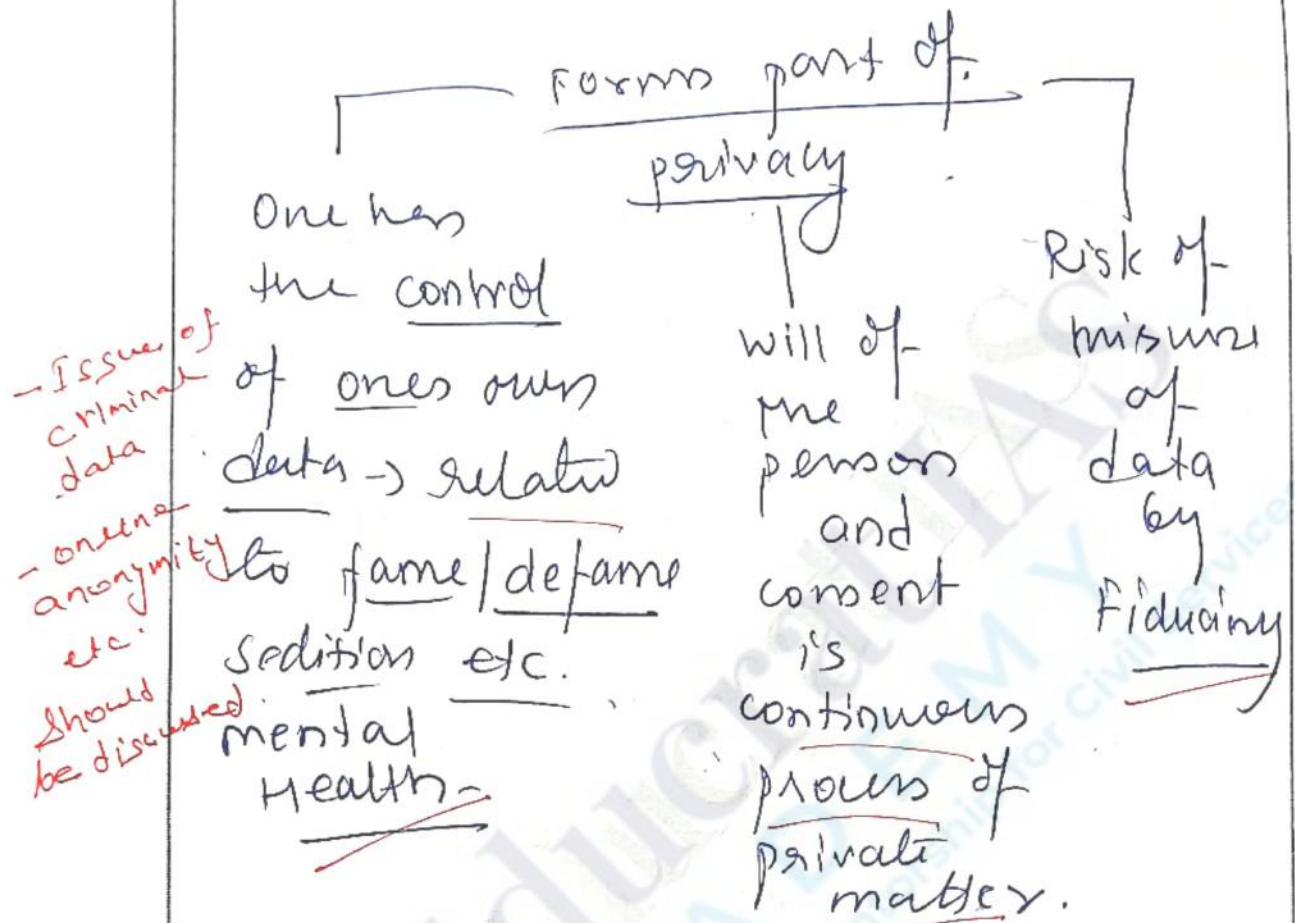 Forms part of
privacy
One has
the control
of ones own
data → relatd
to fame/defame
sedition etc.
mental
Health-
will of
the
person
and
consent
is
continuous
process of
private
matter.
Risk of
misuse
of
data
by
Fiduciary
- Issue of
criminal
data
- online
anonymity
etc.
should
be discussed